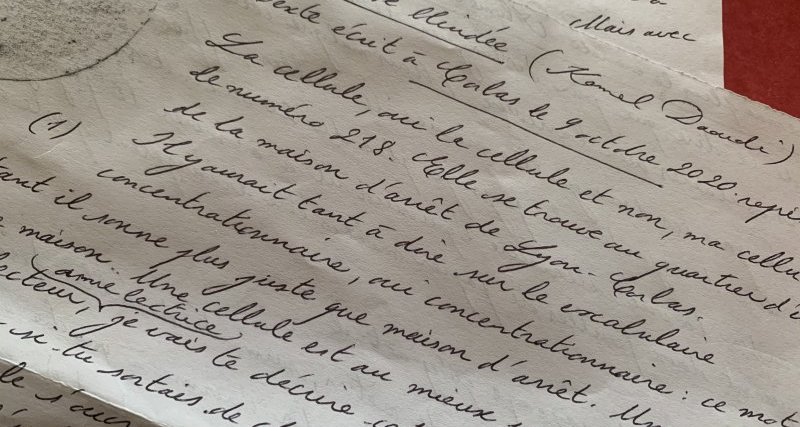 Mais avec
blindée (Kamel Daoudi)
texte écrit à Corbas le 9 octobre 2020.
La cellule, oui la cellule et non, ma cellule
de numéro 218. Elle se trouve au quartier d'
de la maison d'arrêt de Lyon-Corbas.
(1) Il y aurait tant à dire sur le vocabulaire
concentrationnaire, oui concentrationnaire : ce mot
tant il sonne plus juste que maison d'arrêt. Un
maison. Une cellule est au mieux
(amie lectrice)
lecteur, je vais te décrire
si tu sortais de